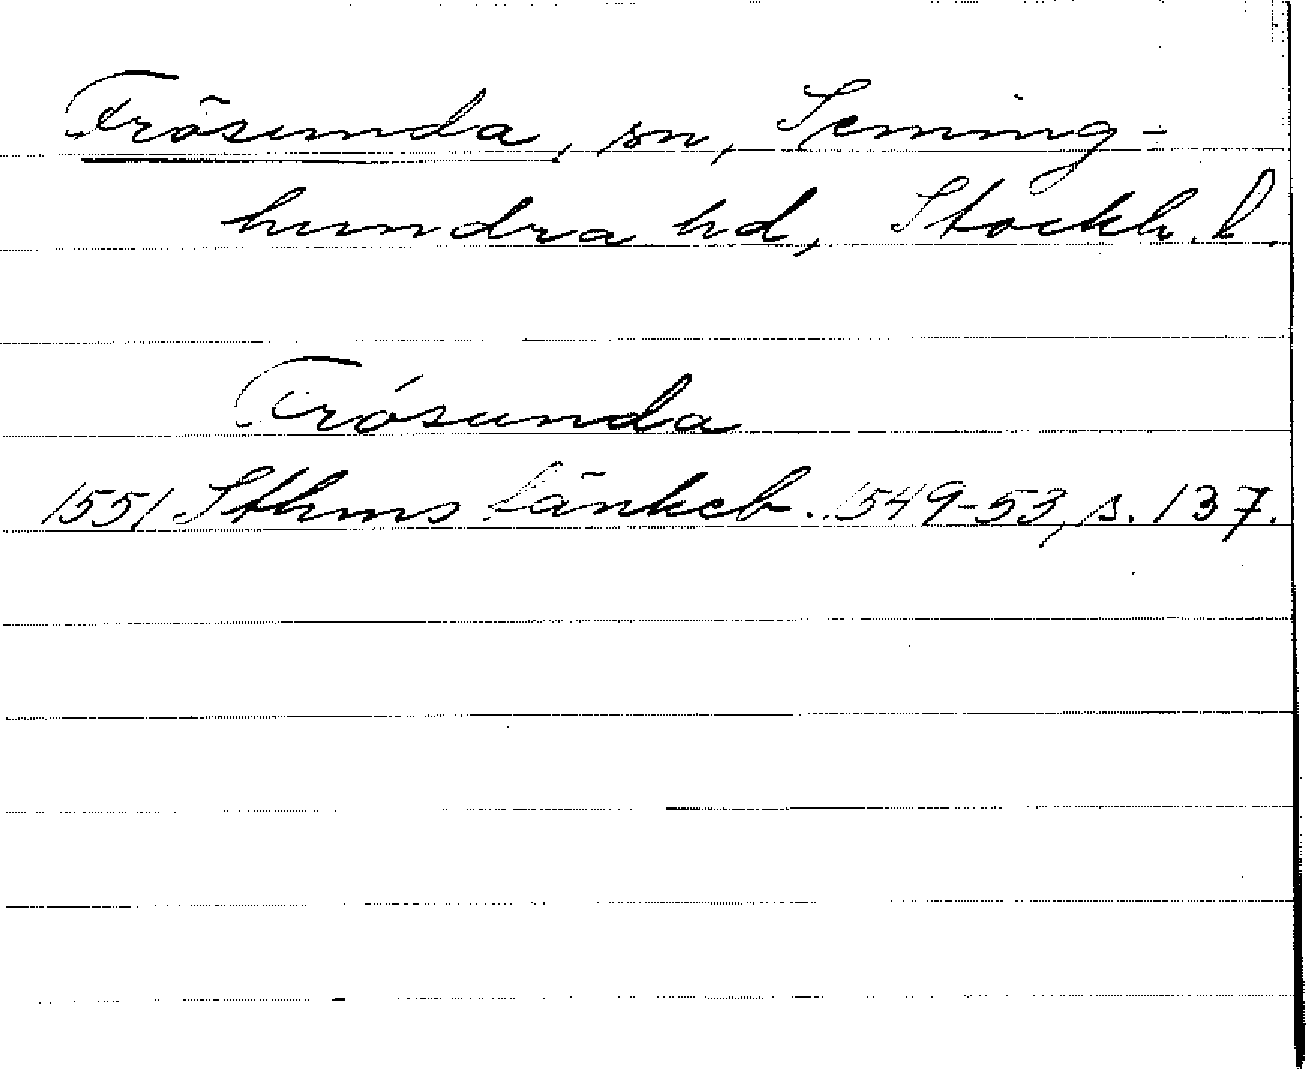 Frösunda, sn, Seming-
hundra hd, Stockh. l.
Frósunda
1551 Sthms tänkeb. 1549-53, s. 137.